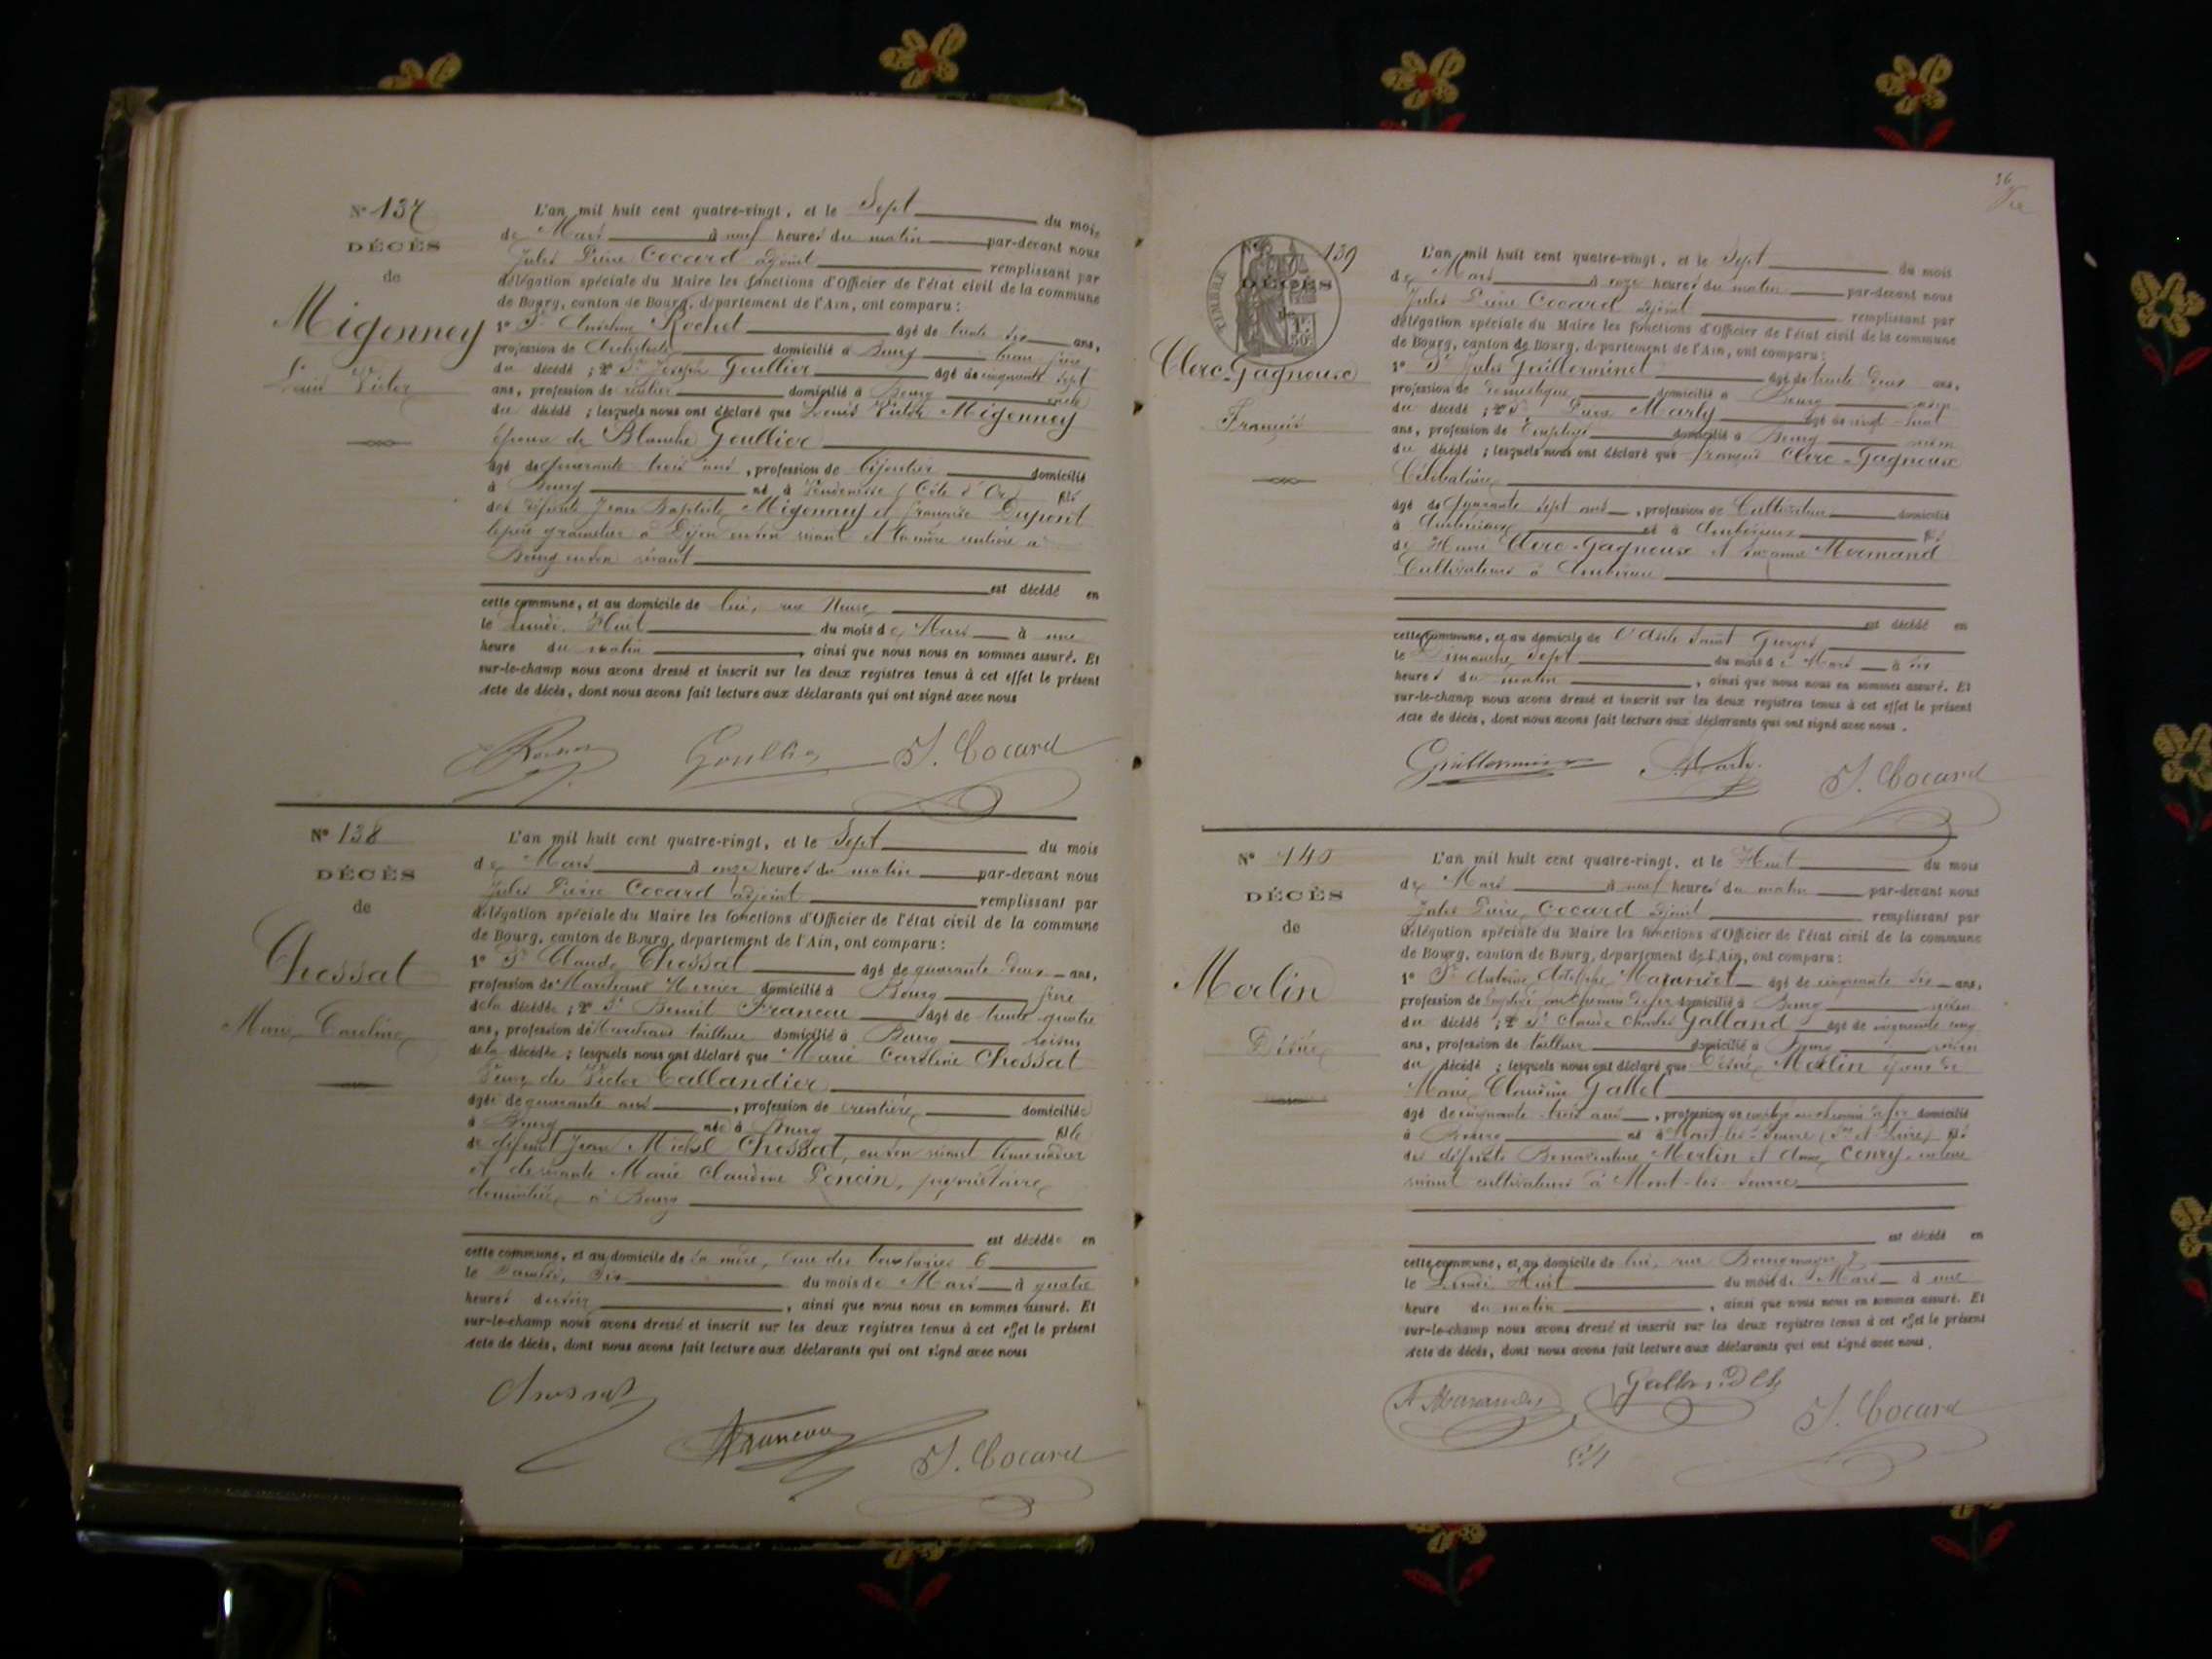 N° 137
DÉCÈS
de
Migonney
Louis Victor
L'an mil huit cent quatre-vingt, et le Sept du mois
de Mars à neuf heures du matin par-devant nous
Jules Pierre Cocard adjoint remplissant par
délégation spéciale du Maire les fonctions d'Officier de l'état civil de la commune
de Bourg, canton de Bourg, département de l'Ain, ont comparu :
1° Sr Anselme Rochet âgé de trente six ans,
profession de Architecte domicilié à Bourg beau frère
du décédé ; 2° Sr Joseph Goullier âgé de cinquante sept
ans, profession de rentier domicilié à Bourg oncle
du décédé ; lesquels nous ont déclaré que Louis Victor Migonney
époux de Blanche Goullier
âgé de quarante trois ans, profession de bijoutier domicilié
à Bourg né à (Côte d'Or) fils
des défunts Jean Baptiste Migonney et françoise Dupont
le père à Dijon en son vivant et la mère rentière à
Bourg en son vivant
est décédé en
cette commune, et au domicile de lui, rue Neuve
le Huit du mois de Mars à une
heure du matin, ainsi que nous nous en sommes assuré. Et
sur-le-champ nous avons dressé et inscrit sur les deux registres tenus à cet effet le présent
Acte de décès, dont nous avons fait lecture aux déclarants qui ont signé avec nous
J. Cocard
N° 138
DÉCÈS
de
Chossat
Marie Caroline
L'an mil huit cent quatre-vingt, et le Sept du mois
de Mars à onze heures du matin par-devant nous
Jules Pierre Cocard adjoint remplissant par
délégation spéciale du Maire les fonctions d'Officier de l'état civil de la commune
de Bourg, canton de Bourg, département de l'Ain, ont comparu :
1° Sr Claude Chossat âgé de quarante deux ans,
profession de Marchand Mercier domicilié à Bourg frère
de la décédée ; 2° Sr Benoit Franeau âgé de trente quatre
ans, profession de Marchand tailleur domicilié à Bourg voisin
de la décédée ; lesquels nous ont déclaré que Marie Caroline Chossat
Veuve de Victor Callandier
âgée de quarante ans, profession de rentière domiciliée
à Bourg née à Bourg fille
de défunt Jean Michel Chossat, en son vivant limonadier
et de vivante Marie Claudine Poncin, propriétaire
domiciliée à Bourg
est décédée en
cette commune, et au domicile de sa mère, rue des 6
le Samedi, Six du mois de Mars à quatre
heures du soir, ainsi que nous nous en sommes assuré. Et
sur-le-champ nous avons dressé et inscrit sur les deux registres tenus à cet effet le présent
Acte de décès, dont nous avons fait lecture aux déclarants qui ont signé avec nous
Chossat
Franeau
J. Cocard
36
N° 139
TIMBRE
1F
50c
DÉCÈS
de
Clerc-Gagneux
François
L'an mil huit cent quatre-vingt, et le Sept du mois
de Mars à onze heures du matin par-devant nous
Jules Pierre Cocard adjoint remplissant par
délégation spéciale du Maire les fonctions d'Officier de l'état civil de la commune
de Bourg, canton de Bourg, département de l'Ain, ont comparu :
1° Sr Jules Guillerminet âgé de trente deux ans,
profession de domestique domicilié à Bourg voisin
du décédé ; 2° Sr Pierre Marly âgé de vingt-huit
ans, profession de Employé domicilié à Bourg voisin
du décédé ; lesquels nous ont déclaré que françois Clerc-Gagneux
Célibataire
âgé de quarante sept ans, profession de Cultivateur domicilié
à Ambérieux né à Ambérieux fils
de Henri Clerc-Gagneux et Suzanne Mermand
Cultivateurs à Ambérieux
est décédé en
cette commune, et au domicile de l'Asile Saint Georges
le Dimanche Sept du mois de Mars à six
heures du matin, ainsi que nous nous en sommes assuré. Et
sur-le-champ nous avons dressé et inscrit sur les deux registres tenus à cet effet le présent
Acte de décès, dont nous avons fait lecture aux déclarants qui ont signé avec nous.
J. Cocard
N° 140
DÉCÈS
de
Merlin
Désiré
L'an mil huit cent quatre-vingt, et le Huit du mois
de Mars à neuf heures du matin par-devant nous
Jules Pierre Cocard adjoint remplissant par
délégation spéciale du Maire les fonctions d'Officier de l'état civil de la commune
de Bourg, canton de Bourg, département de l'Ain, ont comparu :
1° Sr Antoine Adolphe âgé de cinquante six ans,
profession de Employé au chemin de fer domicilié à Bourg voisin
du décédé ; 2° Sr Claude Charles Galland âgé de cinquante cinq
ans, profession de tailleur domicilié à Bourg voisin
du décédé ; lesquels nous ont déclaré que Désiré Merlin époux de
Marie Claudine Gallet
âgé de cinquante-trois ans, profession de employé au chemin de fer domicilié
à Bourg né à Mont-les-Seurre (Sne et Loire) fils
des défunts Bonaventure Merlin et Anne Cenry en leur
vivant cultivateurs à Mont-les-Seurre
est décédé en
cette commune, et au domicile de lui, rue Bourgmayer 7
le Lundi Huit du mois de Mars à une
heure du matin, ainsi que nous nous en sommes assuré. Et
sur-le-champ nous avons dressé et inscrit sur les deux registres tenus à cet effet le présent
Acte de décès, dont nous avons fait lecture aux déclarants qui ont signé avec nous.
J. Cocard